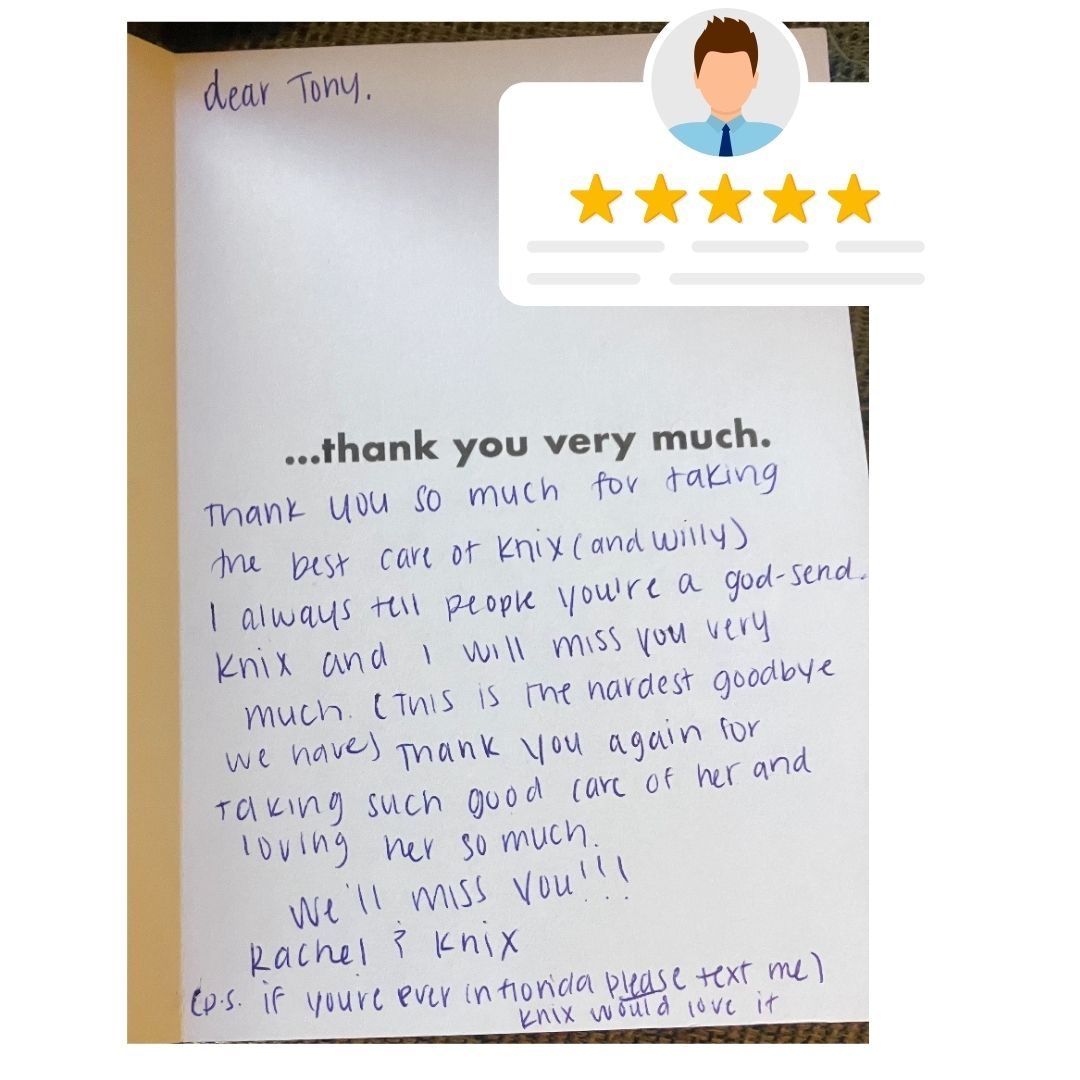 dear Tony.
...thank you very much.
Thank you so much for taking
the best care of Knix (and willy)
I always tell people you're a god-send.
Knix and I will miss you very
much. (This is the hardest goodbye
we have) Thank you again for
taking such good care of her and
loving her so much.
We'll miss you!!!
Rachel & Knix
(p.s. if you're ever in florida please text me)
Knix would love it